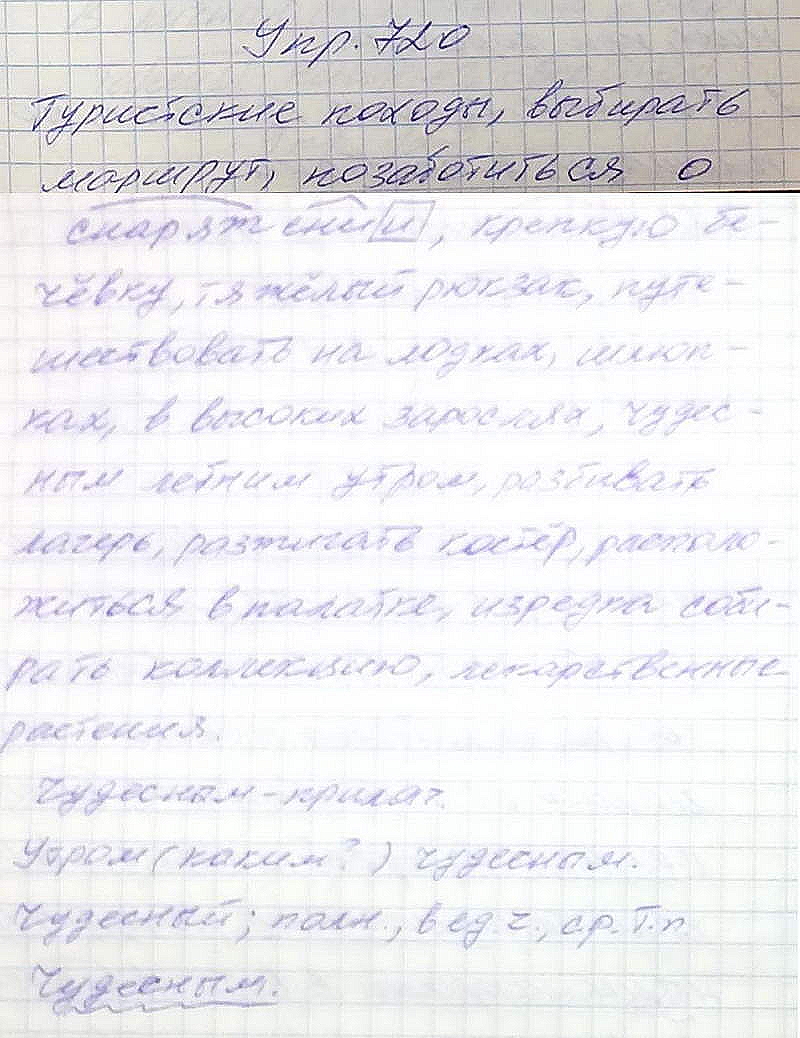 Упр. 720
Туристские походы, выбирать
маршрут, позаботиться о
снаряжении, крепкую бе-
чёвку, тяжёлый рюкзак, путе-
шествовать на лодках, шлюп-
ках, в высоких зарослях, чудес-
ным летним утром, разбивать
лагерь, разжигать костёр, располо-
житься в палатке, изредка соби-
рать коллекцию, лекарственные
растения.
Чудесным - прилаг.
Утром (каким?) чудесным.
Чудесный; полн., в ед. ч., ср. Т.п.
Чудесным.